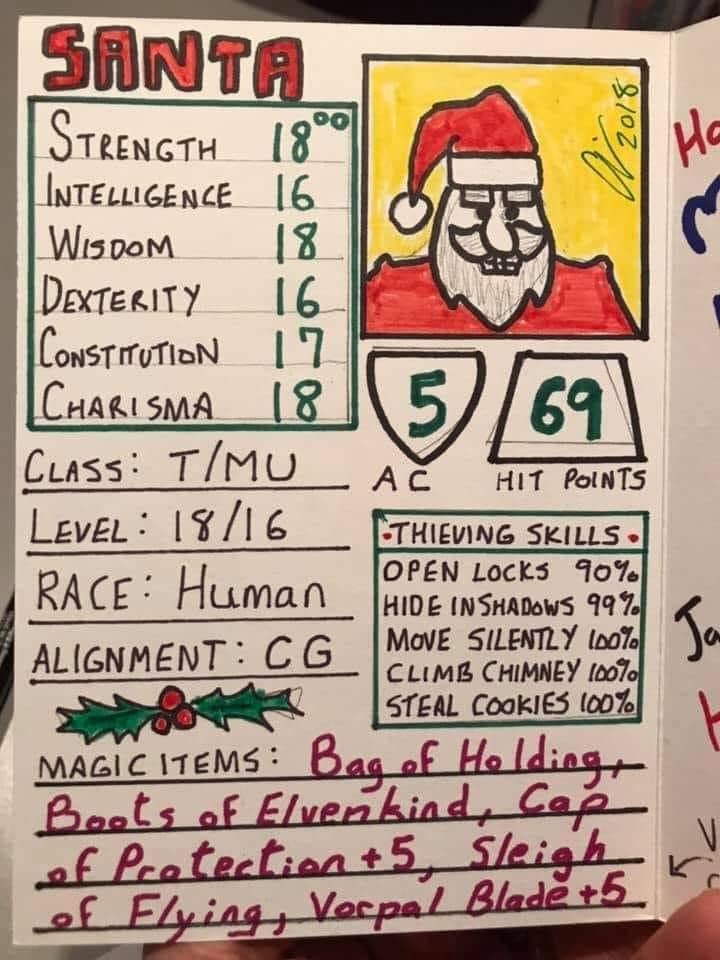 SANTA
STRENGTH 18⁰⁰
INTELLIGENCE 16
WISDOM 18
DEXTERITY 16
CONSTITUTION 17
CHARISMA 18
2018
5
69
AC
HIT POINTS
CLASS: T/MU
LEVEL: 18/16
RACE: Human
ALIGNMENT: CG
•THIEVING SKILLS•
OPEN LOCKS 90%
HIDE IN SHADOWS 99%
MOVE SILENTLY 100%
CLIMB CHIMNEY 100%
STEAL COOKIES 100%
MAGIC ITEMS: Bag of Holding,
Boots of Elvenkind, Cap
of Protection +5, Sleigh
of Flying, Vorpal Blade +5